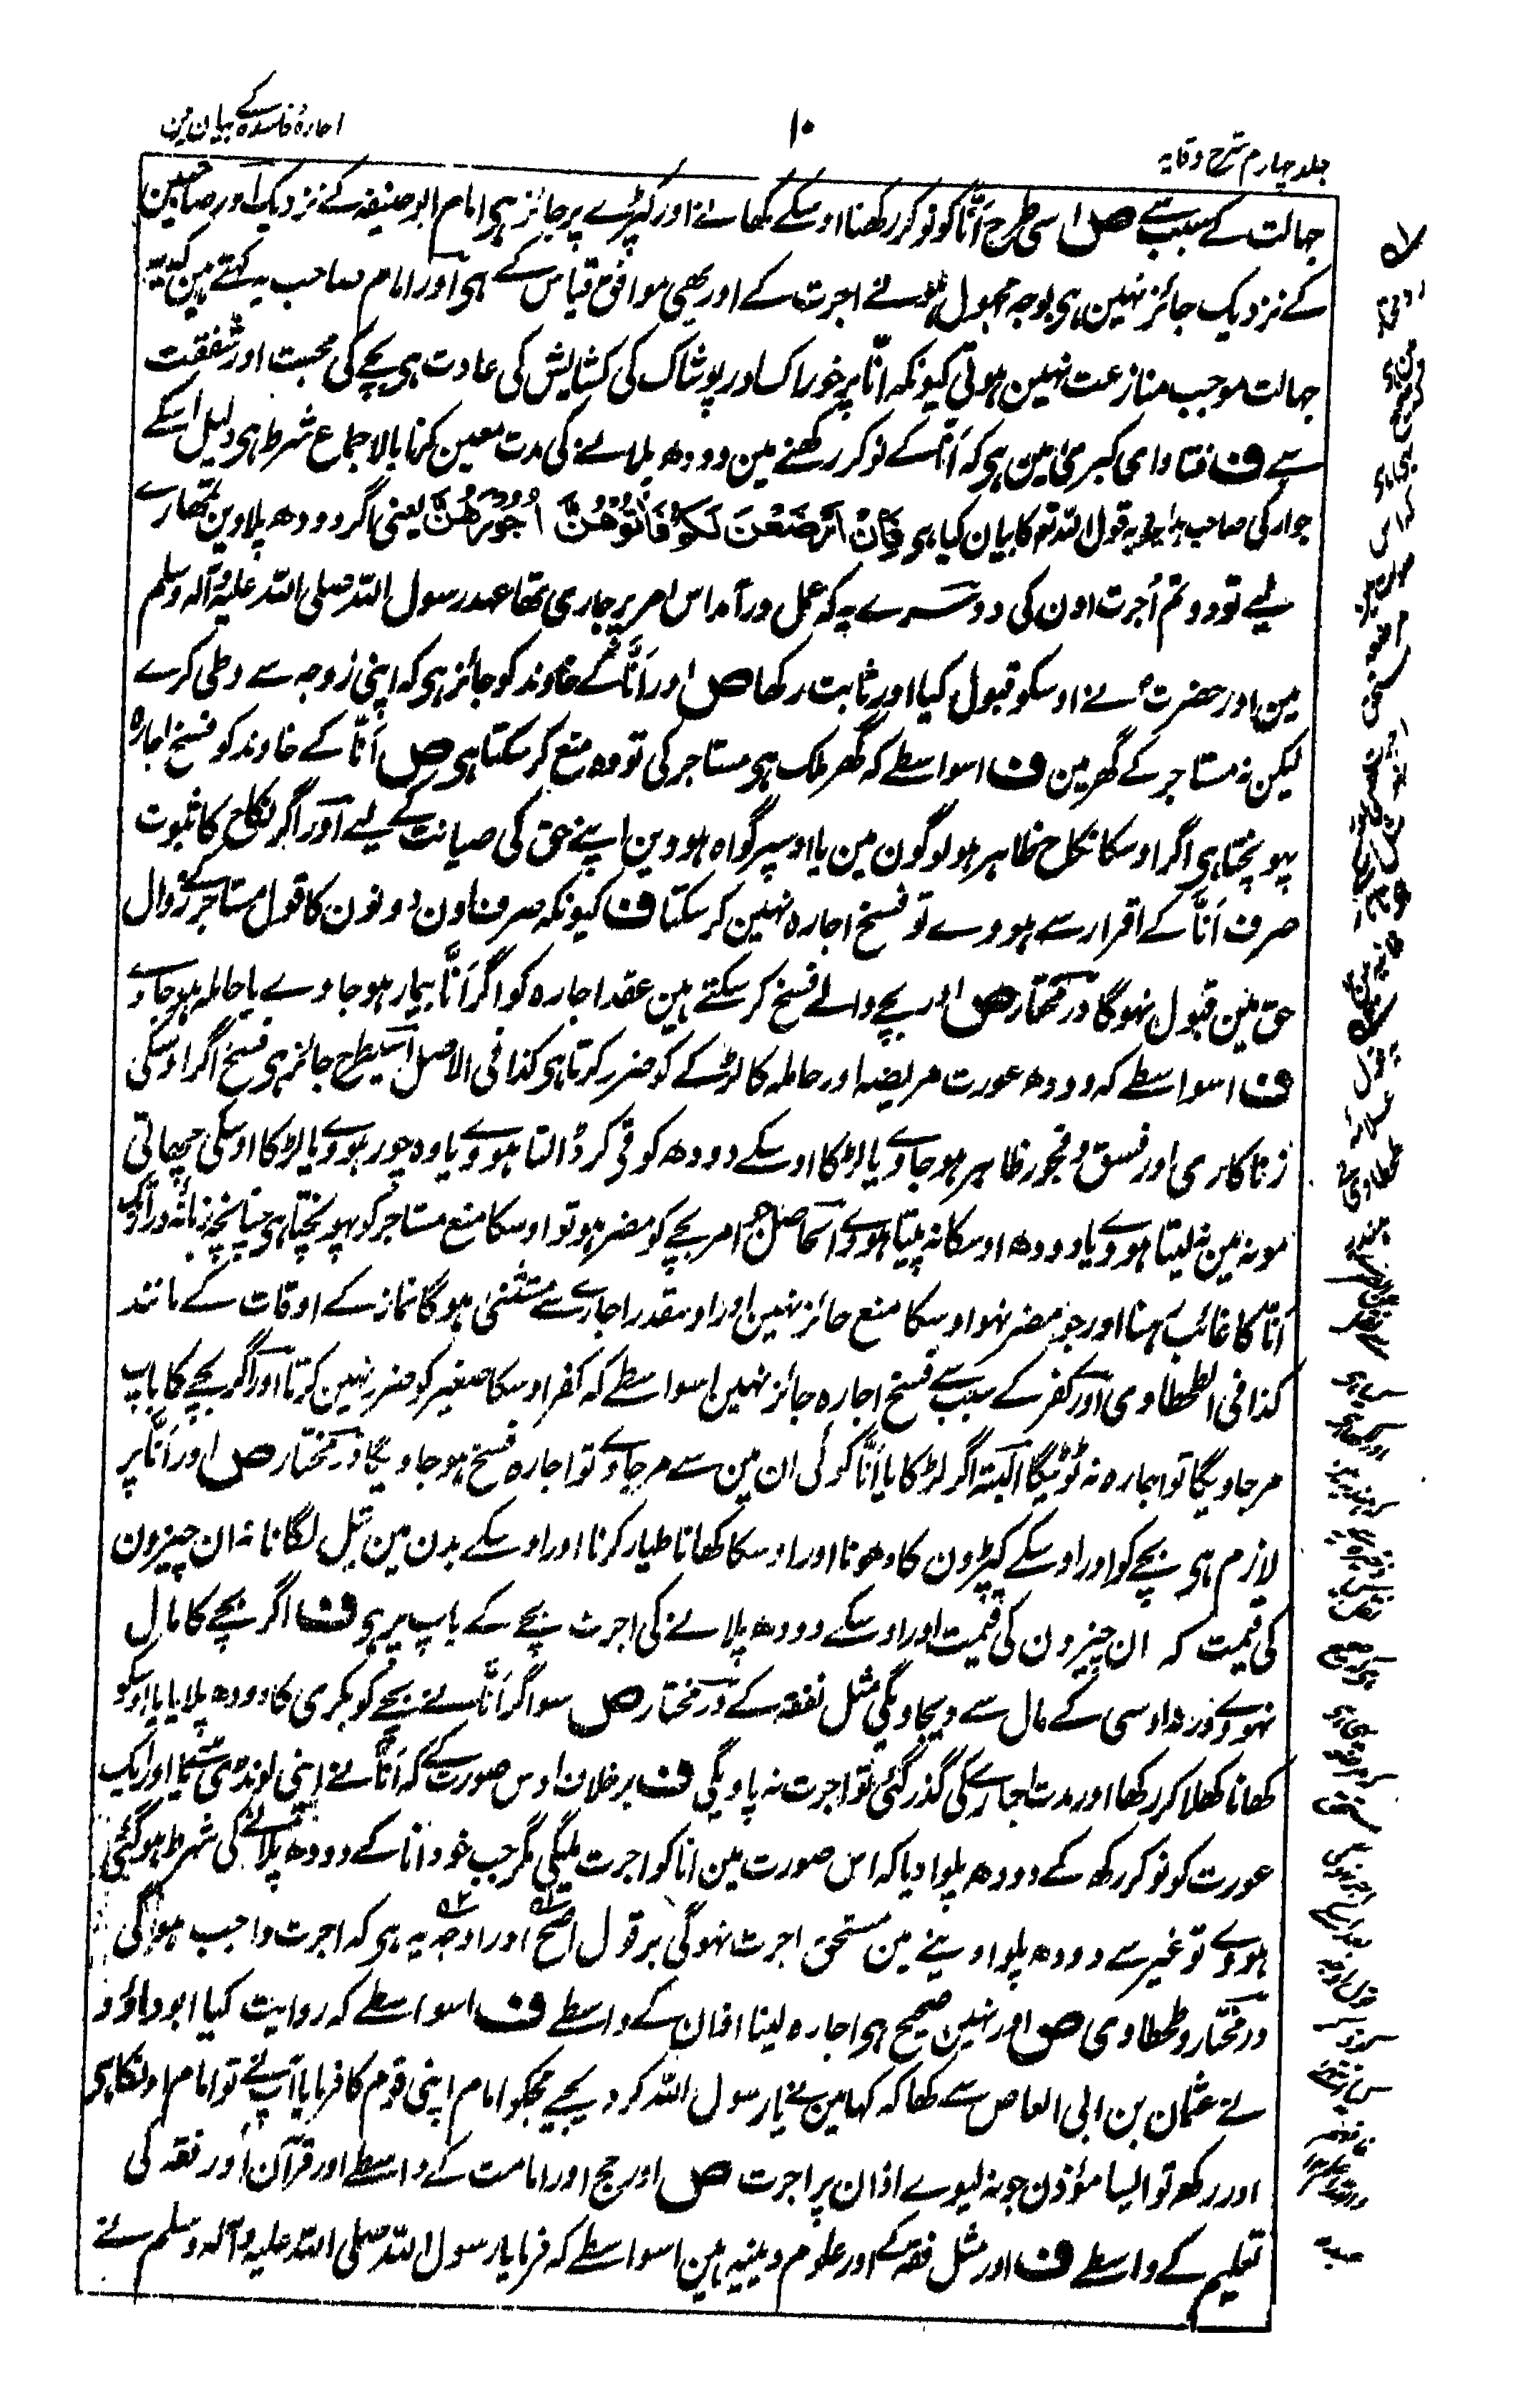 جلد چہارم شرح وقایہ
۱۰
اجارۂ فاسدہ کے بیان مین
جہالت کے سبب سے ص اسی طرح اَنّا کو نوکر رکھنا اوسکے کھانے اور کپڑے پر جائز ہی امام ابو حنیفہ کے نزدیک اور صاحبین
کے نزدیک جائز نہین ہی بوجہ مجہول ہونے اجرت کے اور یہی موافق قیاس کے ہی اور امام صاحب یہ کہتے ہین کہ یہ
جہالت موجب منازعت نہین ہوتی کیونکہ انّا پر خوراک اور پوشاک کی کشایش کی عادت ہی بچے کی محبت اور شفقت
سے ف فتاوای کبری مین ہی کہ اَنّا کے نوکر رکھنے مین دودھ پلانے کی مدت معین کرنا بالاجماع شرط ہی دلیل اسکے
جواز کی صاحب ہدایہ نے یہ قول اللہ تم کا بیان کیا ہی فَاِنْ اَرْضَعْنَ لَكُمْ فَاٰتُوْهُنَّ اُجُوْرَهُنَّ یعنی اگر دودھ پلاوین تمھارے
لیے تو دو تم اُجرت اون کی دوسرے یہ کہ عمل درآمد اس امر پر جاری تھا عہد رسول اللہ صلی اللہ علیہ وآلہ وسلم
مین اور حضرت نے اوسکو قبول کیا اور ثابت رکھا ص اور اَنّا کے خاوند کو جائز ہی کہ اپنی زوجہ سے وطی کرے
لیکن نہ مستاجر کے گھر مین ف اسواسطے کہ گھر ملک ہی مستاجر کی تو وہ منع کر سکتا ہی ص اَنّا کے خاوند کو فسخ اجارہ
پہونچتا ہی اگر اوسکا نکاح ظاہر ہو لوگون مین یا اوسپر گواہ ہووین اپنے حق کی صیانت کے لیے اور اگر نکاح کا ثبوت
صرف اَنّا کے اقرار سے ہووے تو فسخ اجارہ نہین کر سکتا ف کیونکہ صرف اون دونون کا قول مستاجر کے زوال
حق مین قبول نہوگا درمختار ص اور بچے والے فسخ کر سکتے ہین عقد اجارہ کو اگر اَنّا بیمار ہو جاوے یا حاملہ ہو جاوے
ف اسواسطے کہ دودھ عورت مریضہ اور حاملہ کا لڑکے کو ضرر کرتا ہی کذا فی الاصل اسیطرح جائز ہی فسخ اگر اوسکی
زناکاری اور فسق و فجور ظاہر ہو جاوے یا لڑکا اوسکے دودھ کو قی کر ڈالتا ہووے یا وہ چور ہووے یا لڑکا اوسکی چھاتی
مونہ مین نہ لیتا ہووے یا دودھ اوسکا نہ پیتا ہووے الحاصل جو امر بچے کو مضر ہو تو اوسکا منع مستاجر کو پہونچتا ہی چنانچہ زمانہ دراز تک
اَنّا کا غائب رہنا اور جو مضر نہو اوسکا منع جائز نہین اور اوسقدر اجارے سے مستثنیٰ ہوگا نماز کے اوقات کے مانند
کذا فی الطحطاوی اور کفر کے سبب سے فسخ اجارہ جائز نہین اسواسطے کہ کفر اوسکا صغیر کو ضرر نہین کرتا اور اگر بچے کا باپ
مر جاویگا تو اجارہ نہ ٹوٹیگا البتہ اگر لڑکا یا اَنّا کوئی ان مین سے مر جاوے تو اجارہ فسخ ہو جاویگا درمختار ص اور اَنّا پر
لازم ہی بچے کو اور اوسکے کپڑون کا دھونا اور اوسکا کھانا طیار کرنا اور اوسکے بدن مین تیل لگانا نہ ان چیزون
کی قیمت کہ ان چیزون کی قیمت اور اوسکے دودھ پلانے کی اجرت بچے کے باپ پر ہی ف اگر بچے کا مال
نہووے ورنہ اوسی کے مال سے دیجاویگی مثل نفقہ کے درمختار ص سو اگر اَنّا نے بچے کو بکری کا دودھ پلایا یا اوسکو
کھانا کھلا کر رکھا اور مدت اجارے کی گذر گئی تو اجرت نہ پاویگی ف برخلاف اوس صورت کے کہ اَنّا نے اپنی لونڈی سے یا اور ایک
عورت کو نوکر رکھ کے دودھ پلوا دیا کہ اس صورت مین انا کو اجرت ملیگی مگر جب خود انا کے دودھ پلانے کی شرط ہوگئی
ہووے تو غیر سے دودھ پلوا دینے مین مستحق اجرت نہوگی بر قول اصح اور اوجہ یہ ہی کہ اجرت واجب ہوگی
درمختار و طحطاوی ص اور نہین صحیح ہی اجارہ لینا اذان کے واسطے ف اسواسطے کہ روایت کیا ابو داؤد
نے عثمان بن ابی العاص سے کھا کہ کہا مین نے یا رسول اللہ کر دیجیے مجکو امام اپنی قوم کا فرمایا آپ نے تو امام اونکا ہی
اور رکھ تو ایسا مؤذن جو نہ لیوے اذان پر اجرت ص اور حج اور امامت کے واسطے اور قرآن اور فقہ کی
تعلیم کے واسطے ف اور مثل فقہ کے اور علوم دینیہ ہین اسواسطے کہ فرمایا رسول اللہ صلی اللہ علیہ وآلہ وسلم نے